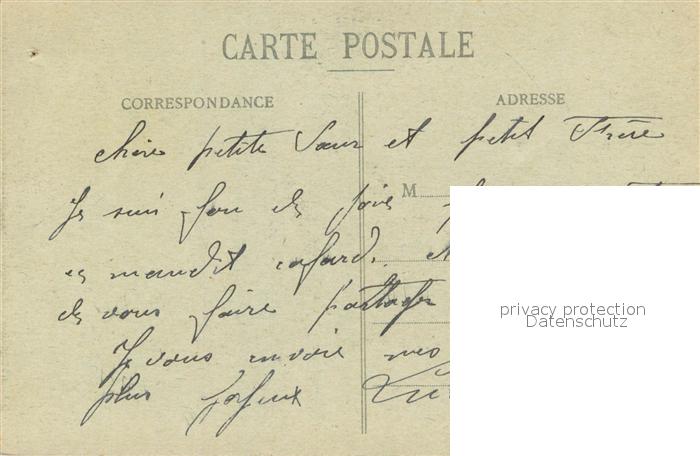 CARTE POSTALE
CORRESPONDANCE
ADRESSE
chère petite Sœur et petit Frère
M
Je suis fou de joie
maudit cafard.
de vous faire partager
Je vous envoie mes
plus joyeux
privacy protection
Datenschutz